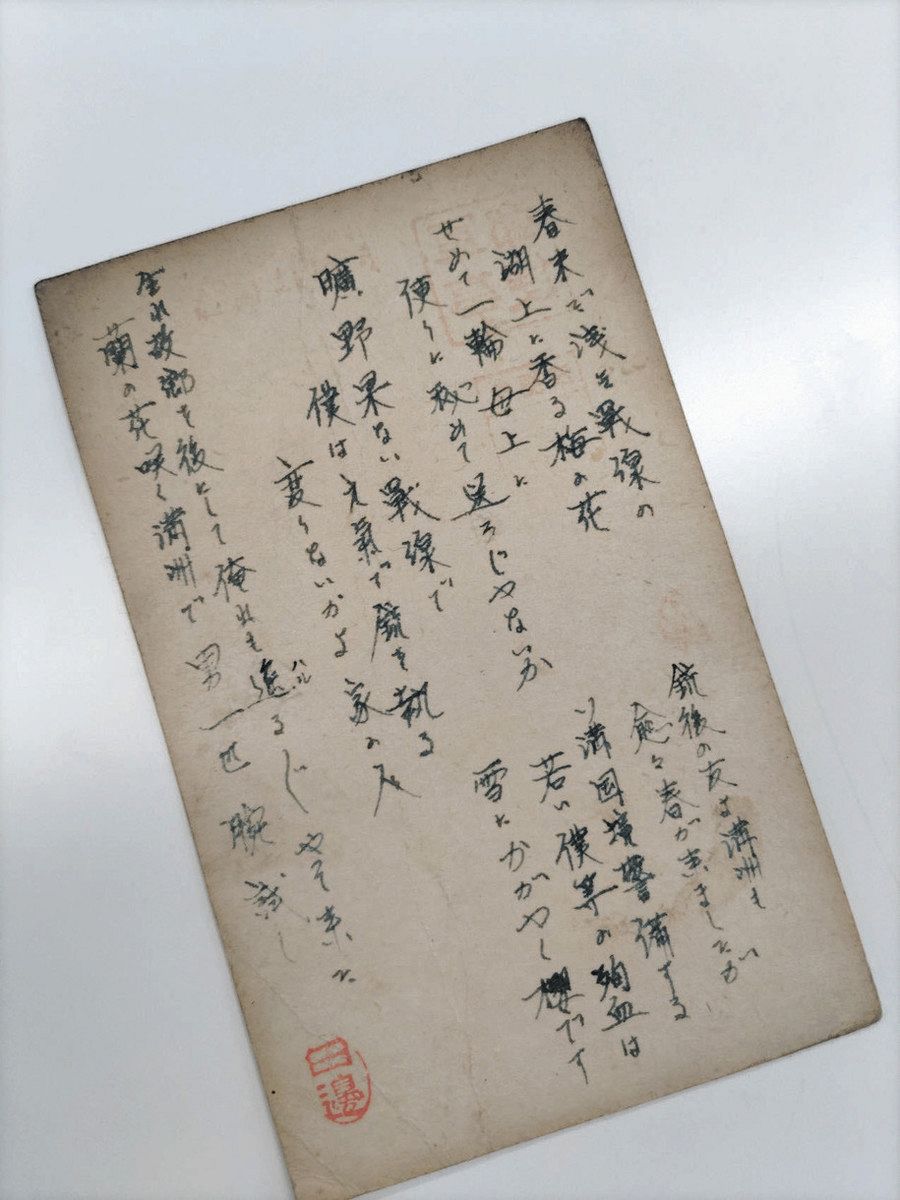 春未だ浅き戰線の
湖上に香る梅の花
せめて一輪母上に
便りに秘めて送ろじやないか
曠野果ない戰線で
僕は元氣で銃を執る
変りないかよ家の人
生れ故郷を後にして俺れも遥ハルる〲やって来た
蘭の花咲く満洲で男一匹腕試し
銃後の友よ満洲も
愈々春が来ましたが
ソ満国境警備する
若い僕等の殉血は
雪にかがやく櫻です
三邊